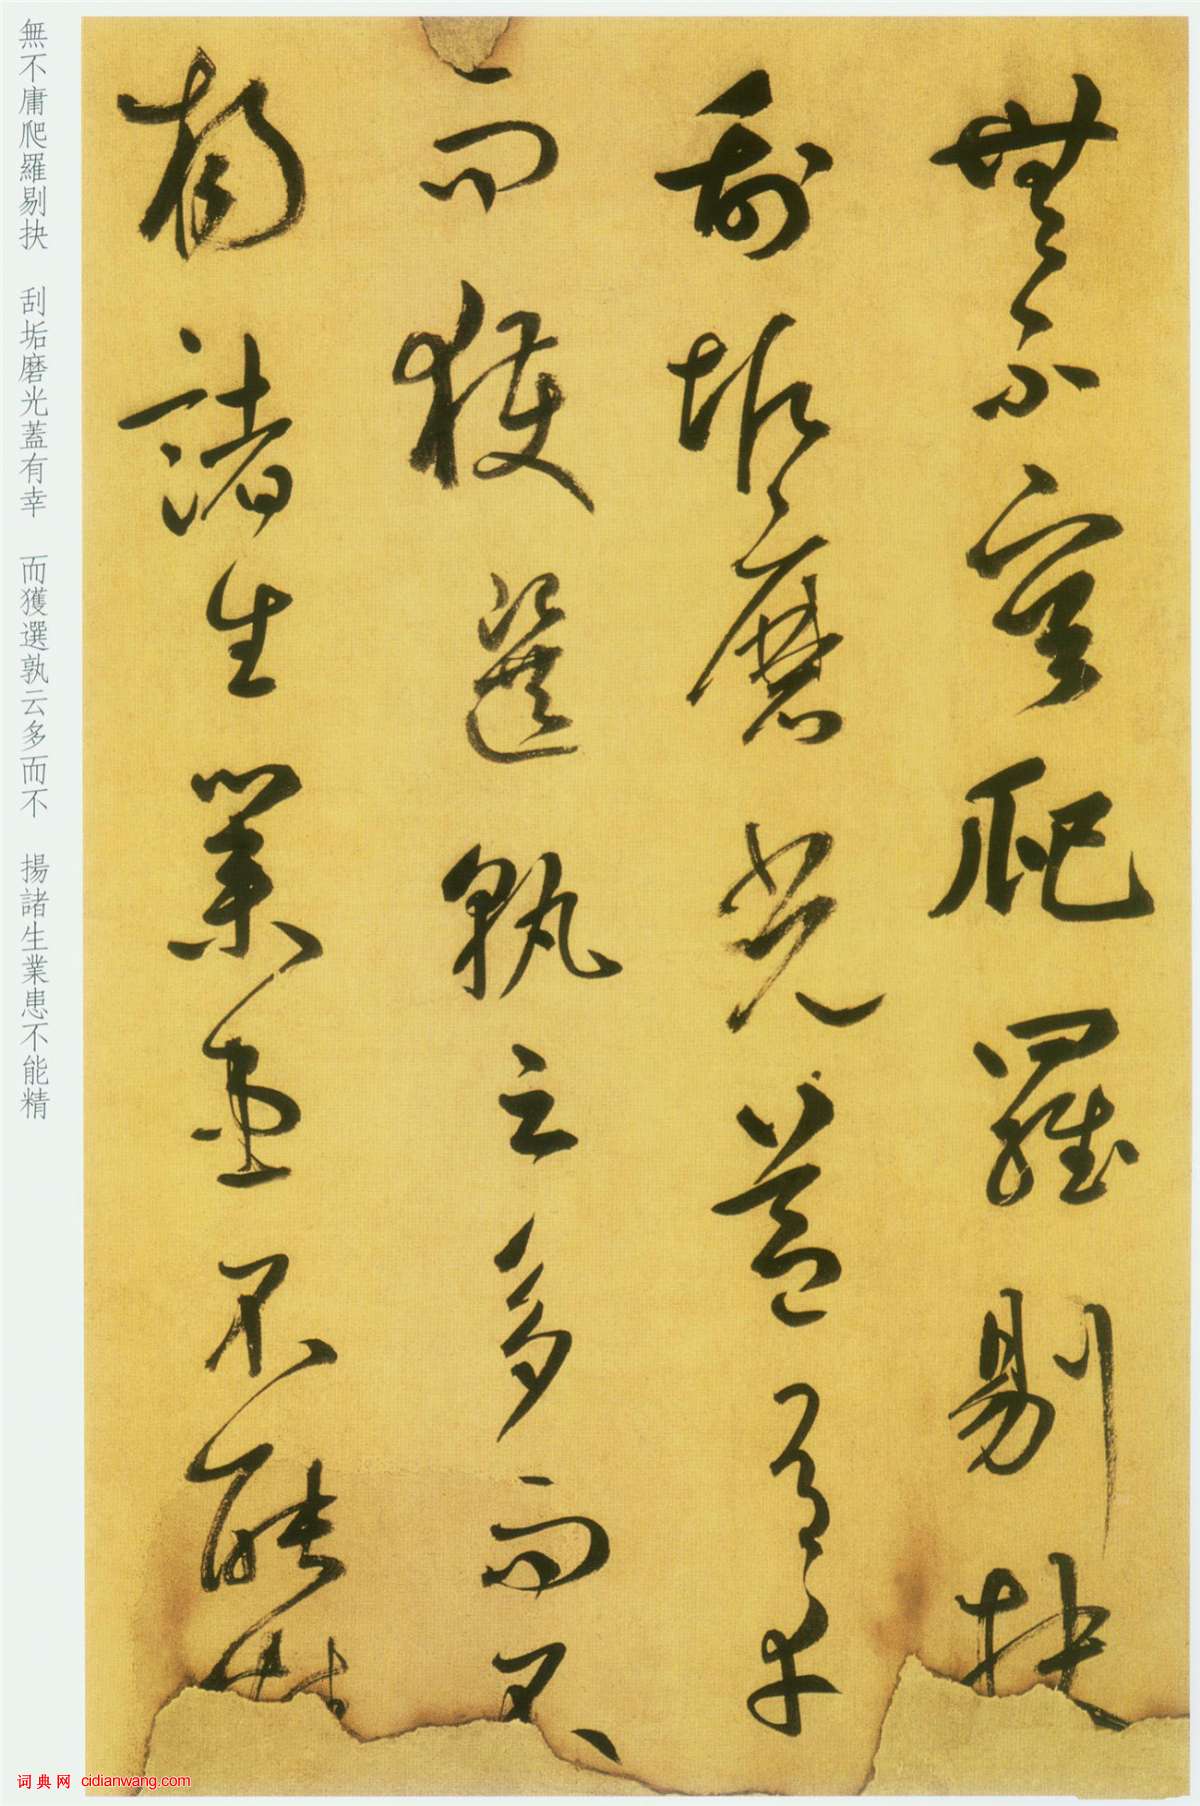 無不庸爬羅剔抉
刮垢磨光蓋有幸
而獲選孰云多而不
揚諸生業患不能精
無不庸爬羅剔抉 刮垢磨光蓋有幸 而獲選孰云多而不 揚諸生業患不能精
词典网 cidianwang.com